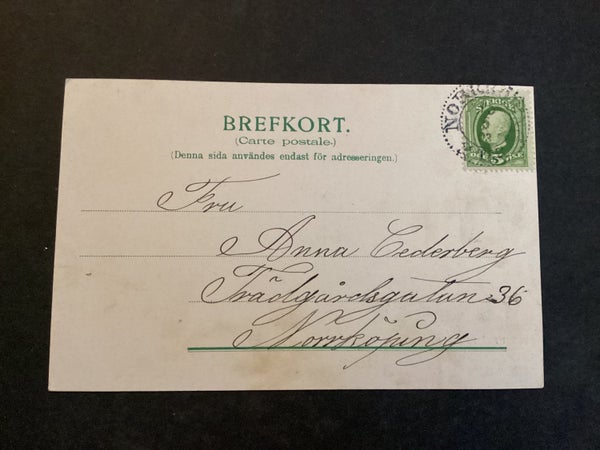 BREFKORT.
(Carte postale.)
(Denna sida användes endast för adresseringen.)
Fru
Anna Cederberg
Trädgårdsgatan 36
Norrköping
SVERIGE
5